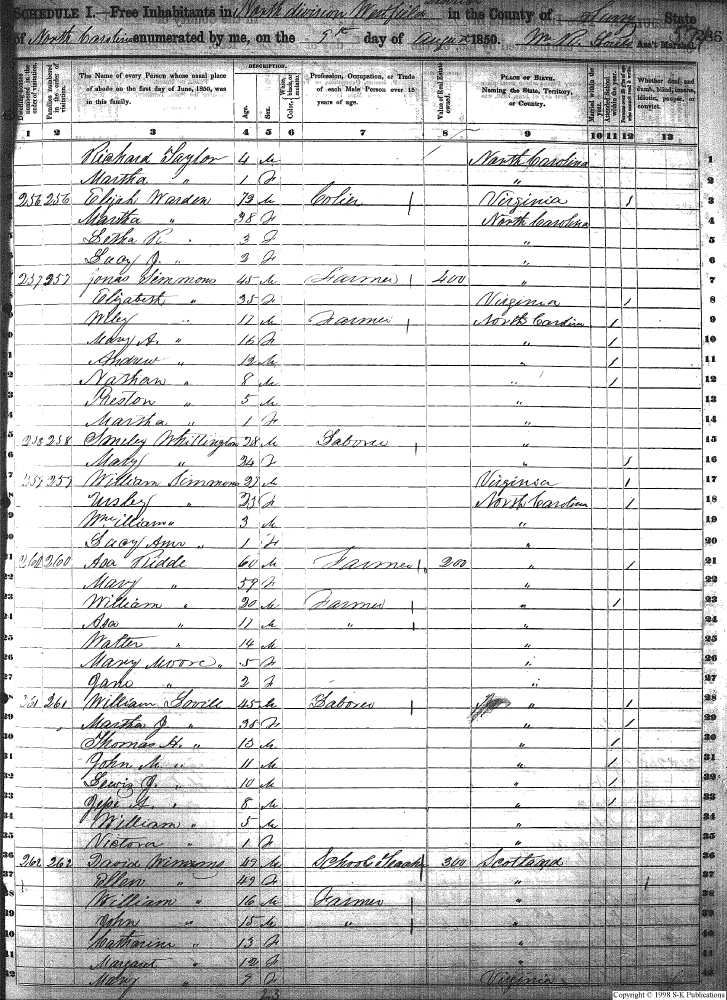 SCHEDULE I.—Free Inhabitants in North division Westfield in the County of Surry State
of North Carolina enumerated by me, on the 9th day of August 1850. Wm R. Ass't Marshal. 286
Dwelling-houses numbered in the order of visitation.
Families numbered in the order of visitation.
The Name of every Person whose usual place of abode on the first day of June, 1850, was in this family.
DESCRIPTION.
Age.
Sex.
Color, White, black, or mulatto.
Profession, Occupation, or Trade of each Male Person over 15 years of age.
Value of Real Estate owned.
PLACE OF BIRTH. Naming the State, Territory, or Country.
Married within the year.
Attended School within the year.
Whether deaf and dumb, blind, insane, idiotic, pauper, or convict.
1 2 3 4 5 6 7 8 9 10 11 12 13
Richard Taylor 4 M North Carolina 1
Martha " 1 F " 2
256 256 Elijah Warden 72 M Colier Virginia / 3
Martha " 38 F North Carolina 4
Letha R. " 3 F " 5
Lacy J. " 2 F " 6
257 257 Jonas Simmons 45 M Farmer 400 " 7
Elizabeth " 35 F Virginia / 8
Wiley " 17 M Farmer North Carolina / 9
Mary A. " 16 F " / 10
Andrew " 12 M " / 11
Nathan " 8 M " / 12
Preston " 5 M " 13
Martha " 1 F 14
258 258 Smiley Whittington 28 M Laborer " 15
Mary " 24 F " / 16
259 259 William Simmons 27 M Virginia / 17
Ursley " 23 F North Carolina / 18
William " 3 M " 19
Lacy Ann " 1 F " 20
260 260 Asa Riddle 60 M Farmer 200 " / 21
Mary " 59 F 22
William " 20 M Farmer " / 23
Asa " 17 M " " 24
Walter " 14 M " 25
Mary Moore " 5 F " 26
Jane " 2 F " 27
261 261 William Lovill 45 M Laborer " / 28
Martha J. " 38 F " / 29
Thomas H. " 13 M " / 30
John M. " 11 M " / 31
Lewis J. " 10 M " / 32
" 8 M " / 33
William " 5 M " 34
Victora " 1 F " 35
262 262 David 49 M School Teach 300 Scotland 36
Ellen " 49 F " / 37
William " 16 M Farmer " 38
John " 15 M " " 39
Catharine " 13 F " 40
Margaret " 12 F " 41
Mary " 9 F Virginia 42
Copyright © 1998 S-K Publications